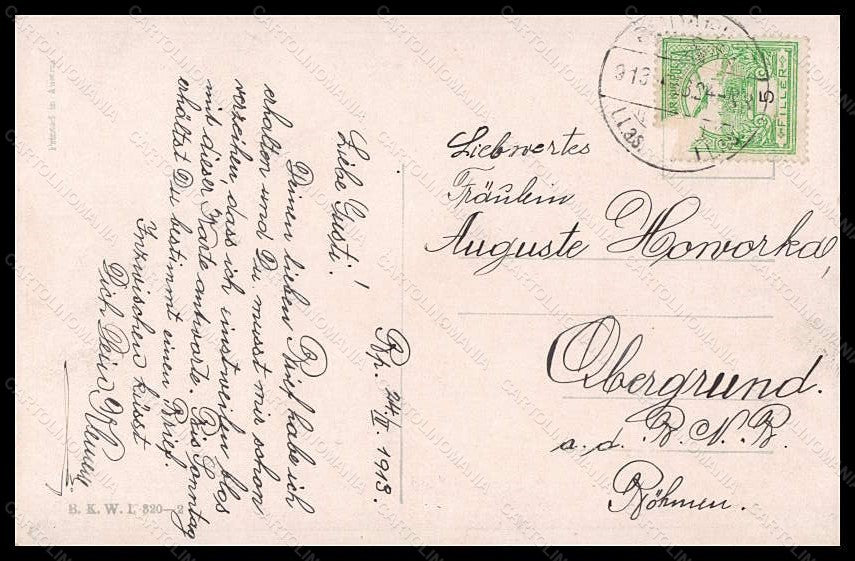 Bp. 24./II. 1913.
Liebe Gusti!
Deinen lieben Brief habe ich
erhalten und Du musst mir schon
verzeihen, dass ich einstweilen blos
mit dieser Karte antworte. Bis Sonntag
erhältst Du bestimmt einen Brief.
Inzwischen küsst
Dich Dein
B. K. W. I. 320—2
Patented in Austria
Liebwertes
Fräulein
Auguste Howorka,
Obergrund.
a. d. B. N. B.
Böhmen.
5
FILLER
913
CARTOLINOMANIA